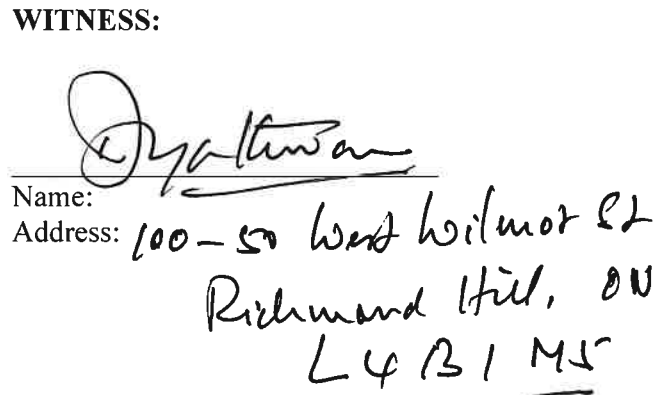 WITNESS:
Name:
Address: 100-50 West Wilmot St
Richmond Hill, ON
L4B1M5